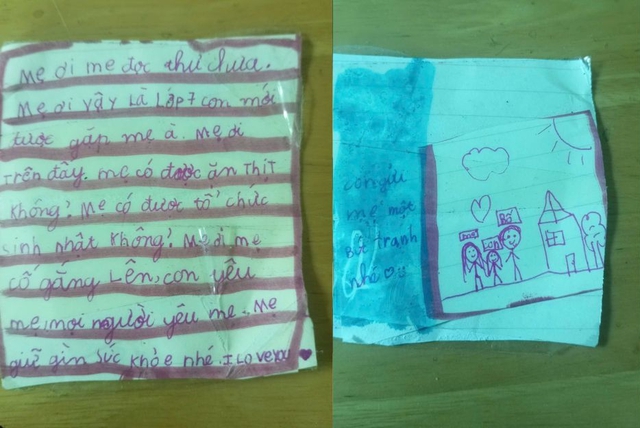 Mẹ ơi mẹ đọc thư chưa.
Mẹ ơi vậy là lớp 7 con mới
được gặp mẹ à. Mẹ ơi
trên đấy. mẹ có được ăn thịt
không? Mẹ có được tổ chức
sinh nhật không? Mẹ ơi mẹ
cố gắng lên, con yêu
mẹ, mọi người yêu mẹ. Mẹ
giữ gìn sức khỏe nhé. I Love you ♥
con gửi
mẹ một
bức tranh
nhé
Bố
con